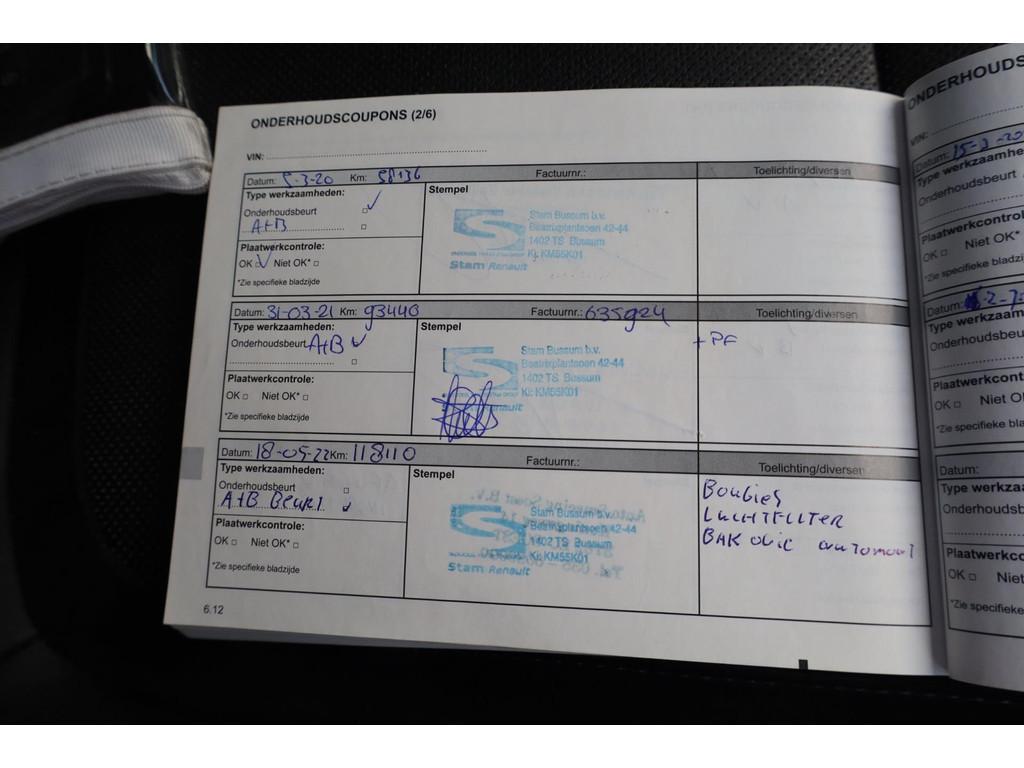 ONDERHOUDSCOUPONS (2/6)
VIN:
Datum: 5-3-20 Km: 58136 Factuurnr.: Toelichting/diversen
Type werkzaamheden:
Stempel
Onderhoudsbeurt
A+B
Stam Bussum b.v.
Beatrixplantsoen 42-44
1402 TS Bussum
KI: KM55K01
Stam Renault
Plaatwerkcontrole:
OK Niet OK*
*Zie specifieke bladzijde
Datum: 31-03-21 Km: 93440 Factuurnr.: 635924 Toelichting/diversen
Type werkzaamheden:
Stempel
Onderhoudsbeurt A+B
+ PF
Stam Bussum b.v.
Beatrixplantsoen 42-44
1402 TS Bussum
KI: KM55K01
Renault
Plaatwerkcontrole:
OK Niet OK*
*Zie specifieke bladzijde
Datum: 18-05-22 Km: 118110 Factuurnr.: Toelichting/diversen
Type werkzaamheden:
Stempel
Onderhoudsbeurt
A+B Beurt
Bougies
LUCHTFILTER
BAK olie automaat
Stam Bussum b.v.
Beatrixplantsoen 42-44
1402 TS Bussum
KI: KM55K01
Stam Renault
Plaatwerkcontrole:
OK Niet OK*
*Zie specifieke bladzijde
6.12
ONDERHOUDS
VIN:
Datum: 15-3-20
Type werkzaamhe
Onderhoudsbeurt
Plaatwerkcontrol
OK Niet OK*
*Zie specifieke bladzi
Datum:
Type werkzaam
Onderhoudsbe
Plaatwerkcont
OK Niet O
*Zie specifieke b
Datum:
Type werkza
Onderhoudsb
Plaatwerkco
OK Niet
*Zie specifieke